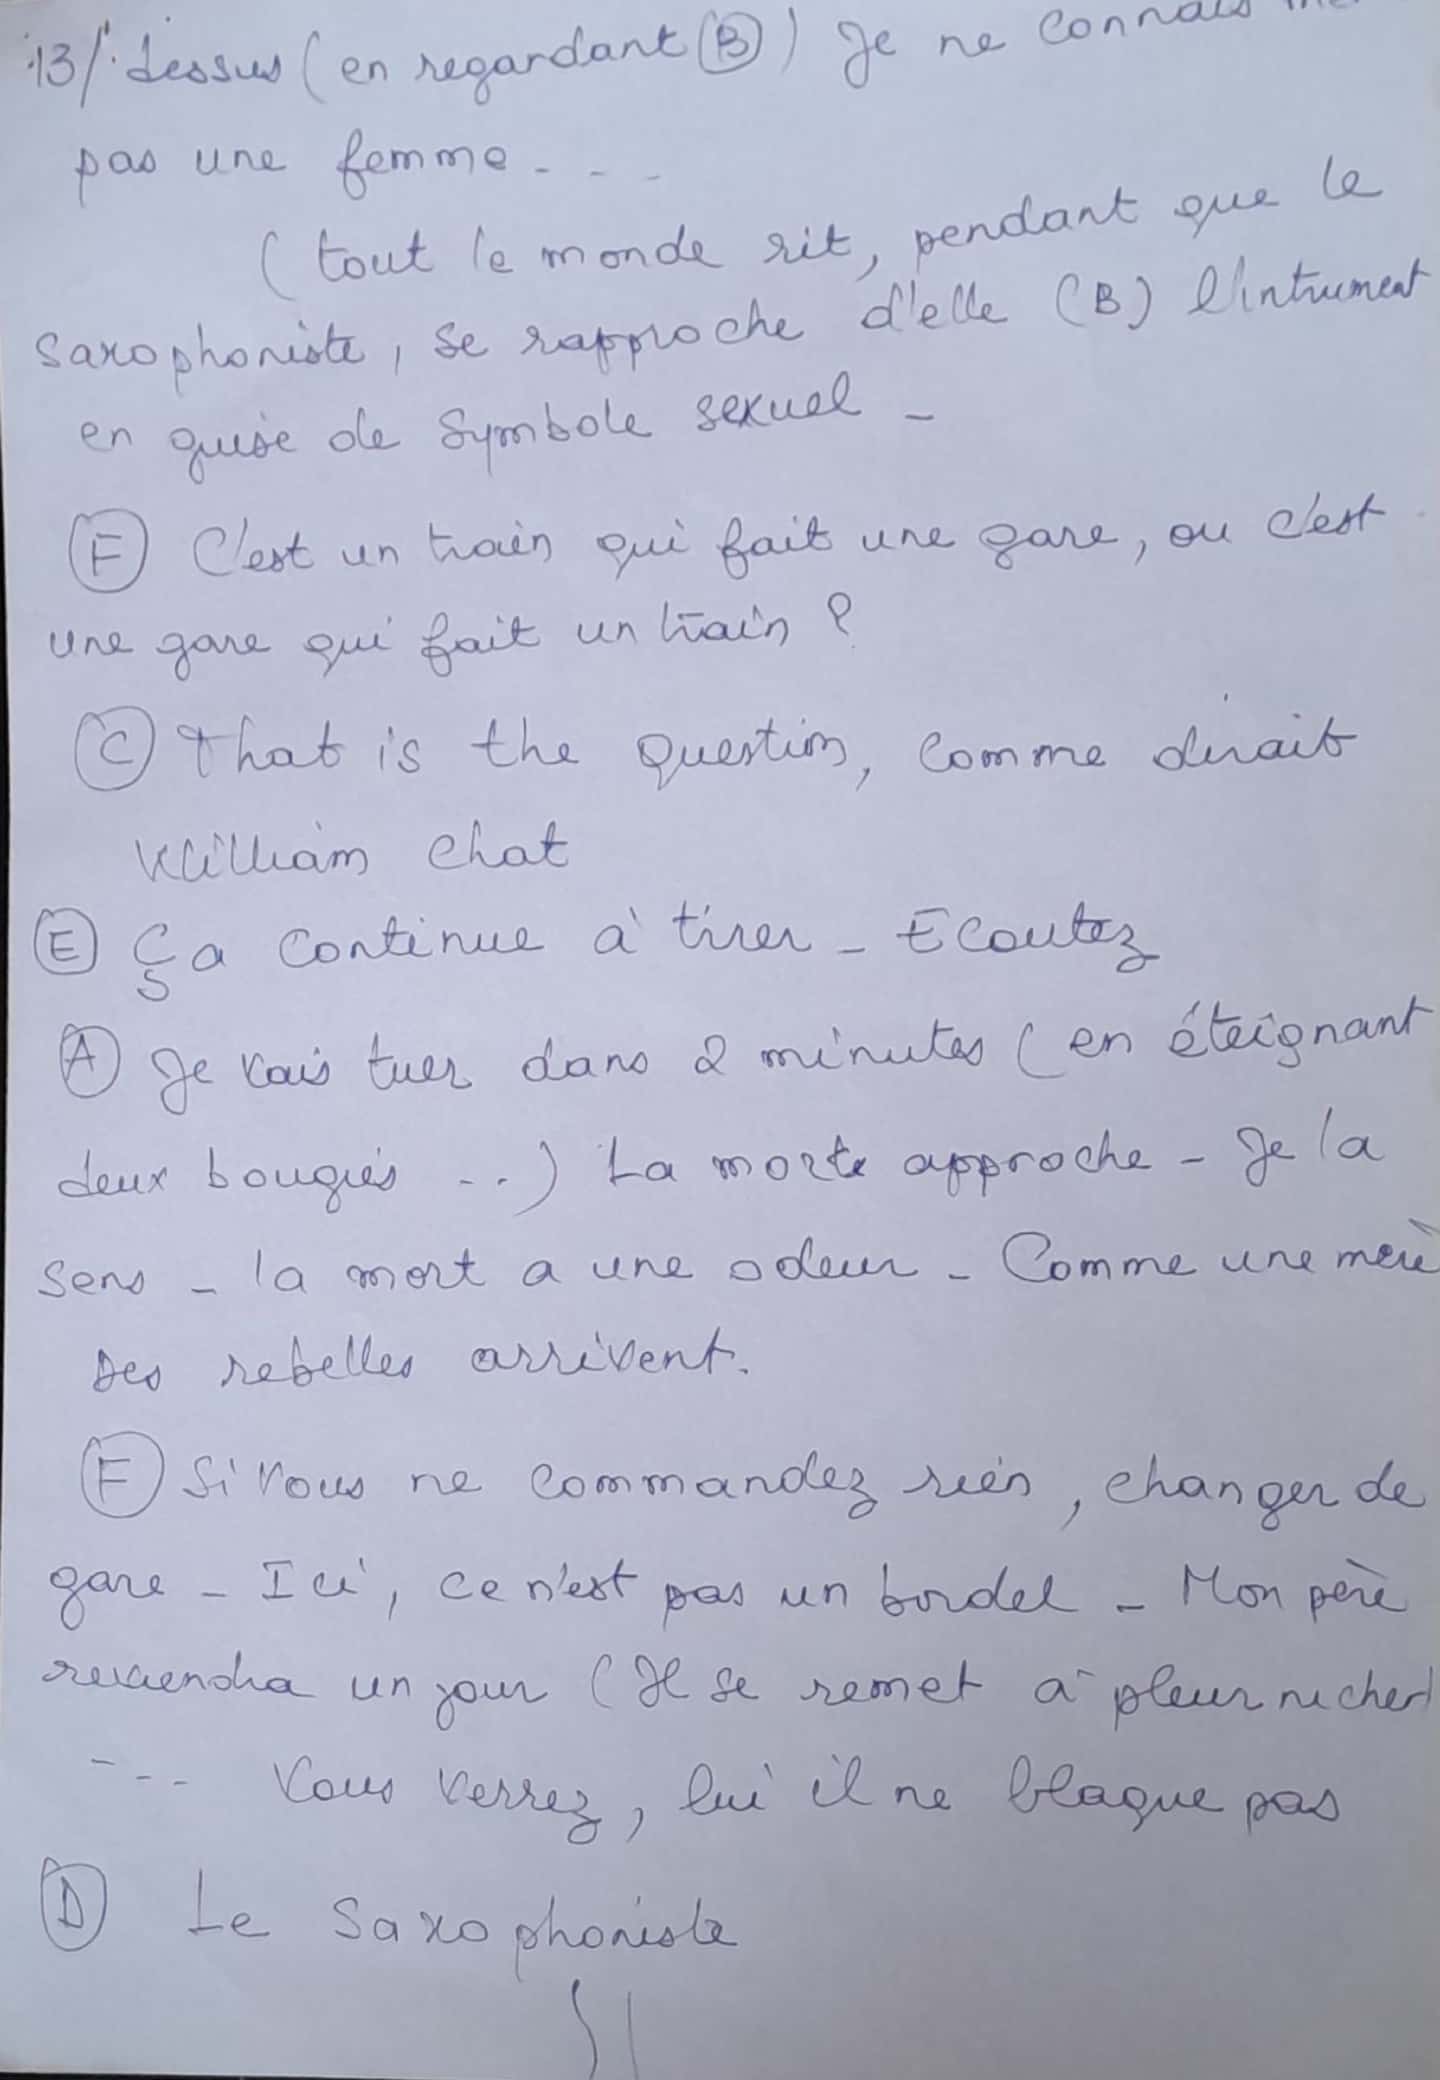 13/. dessus (en regardant (B)) Je ne connais
pas une femme - - -
(tout le monde rit, pendant que le
saxophoniste, se rapproche d'elle (B) l'intrument
en guise de symbole sexuel -
(F) C'est un train qui fait une gare, ou c'est
une gare qui fait un train ?
(C) That is the question, comme dirait
William chat
(E) Ça continue à tirer - Ecoutez
(A) Je vais tuer dans 2 minutes (en éteignant
deux bougies ...) La morte approche - Je la
sens - la mort a une odeur - Comme une mère
Des rebelles arrivent.
(F) Si vous ne commandez rien, changer de
gare - Ici, ce n'est pas un bordel - Mon père
reviendra un jour (Il se remet à pleurnicher)
--- Vous verrez, lui il ne blague pas
(D) Le saxophoniste